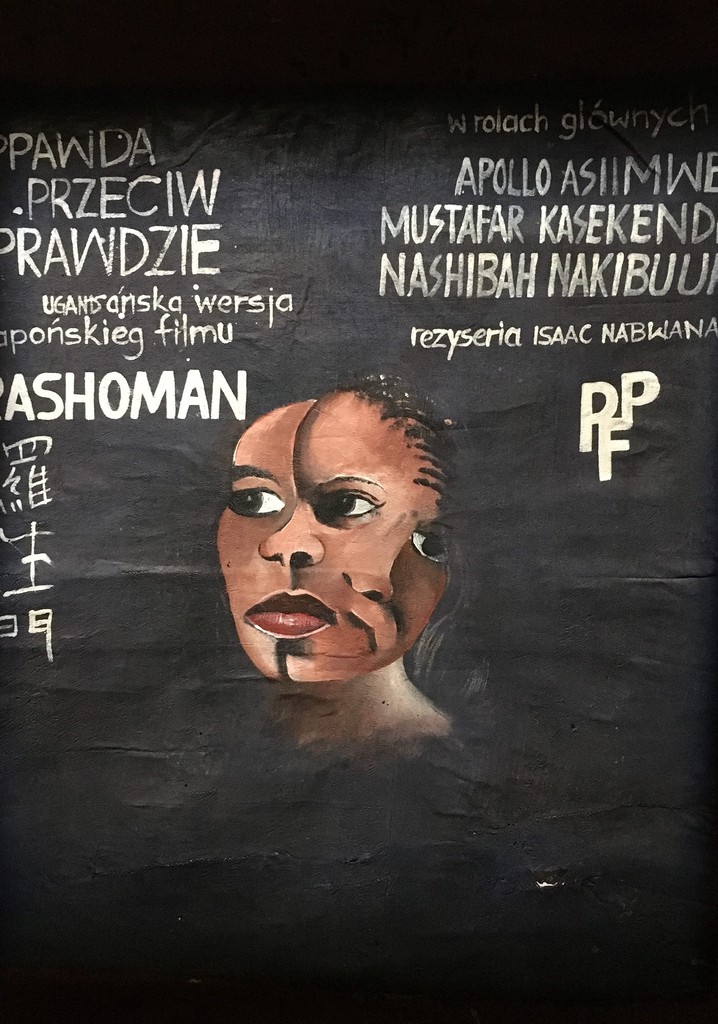 PPAWDA
.PRZECIW
PRAWDZIE
UGANDSańska wersja
apońskieg filmu
RASHOMAN
羅
生
門
w rolach głównych
APOLLO ASIIMWE
MUSTAFAR KASEKENDE
NASHIBAH NAKIBUU
reżyseria ISAAC NABWANA
PPF